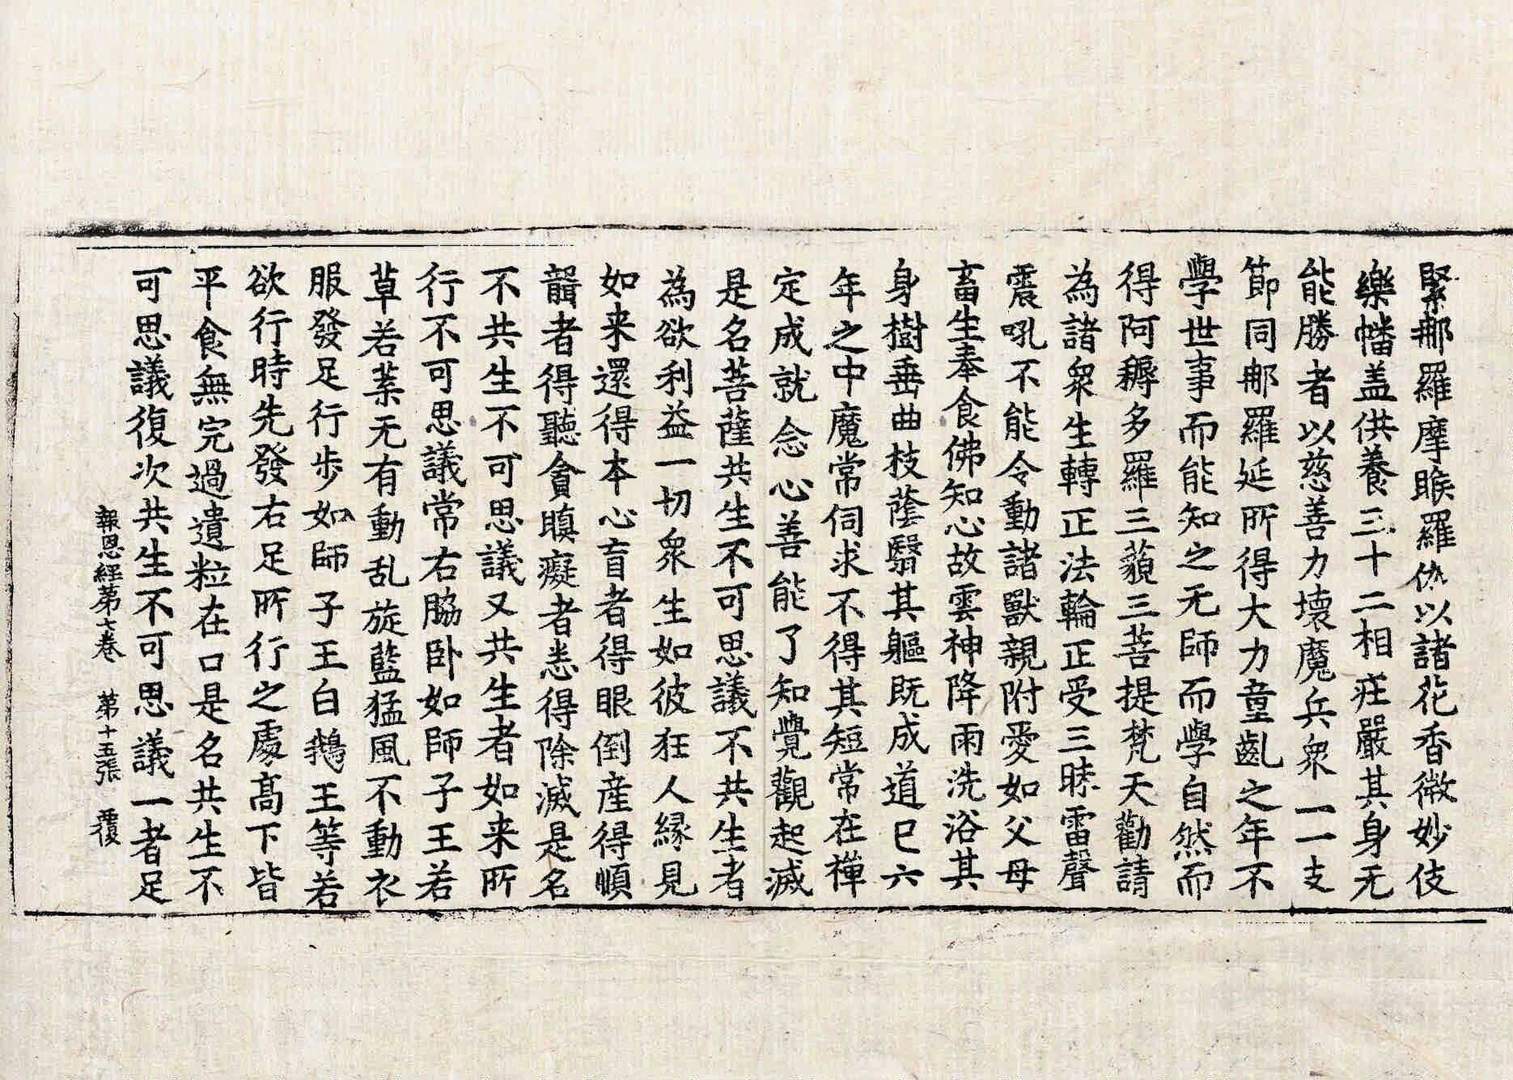 緊那羅摩睺羅伽以諸花香微妙伎
樂幡盖供養三十二相莊嚴其身无
能勝者以慈善力壞魔兵衆一一支
節同那羅延所得大力童齓之年不
學世事而能知之无師而學自然而
得阿耨多羅三藐三菩提梵天勸請
為諸衆生轉正法輪正受三昧雷聲
震吼不能令動諸獸親附愛如父母
畜生奉食佛知心故雲神降雨洗浴其
身樹垂曲枝蔭翳其軀既成道已六
年之中魔常伺求不得其短常在禪
定成就念心善能了知覺觀起滅
是名菩薩共生不可思議不共生者
為欲利益一切衆生如彼狂人緣見
如来還得本心盲者得眼倒産得順
聾者得聽貪瞋癡者悉得除滅是名
不共生不可思議又共生者如来所
行不可思議常右脇卧如師子王若
草若葉无有動乱旋藍猛風不動衣
服發足行步如師子王白鵝王等若
欲行時先發右足所行之處髙下皆
平食無完過遺粒在口是名共生不
可思議復次共生不可思議一者足
報恩經第七卷　第十五張　覆